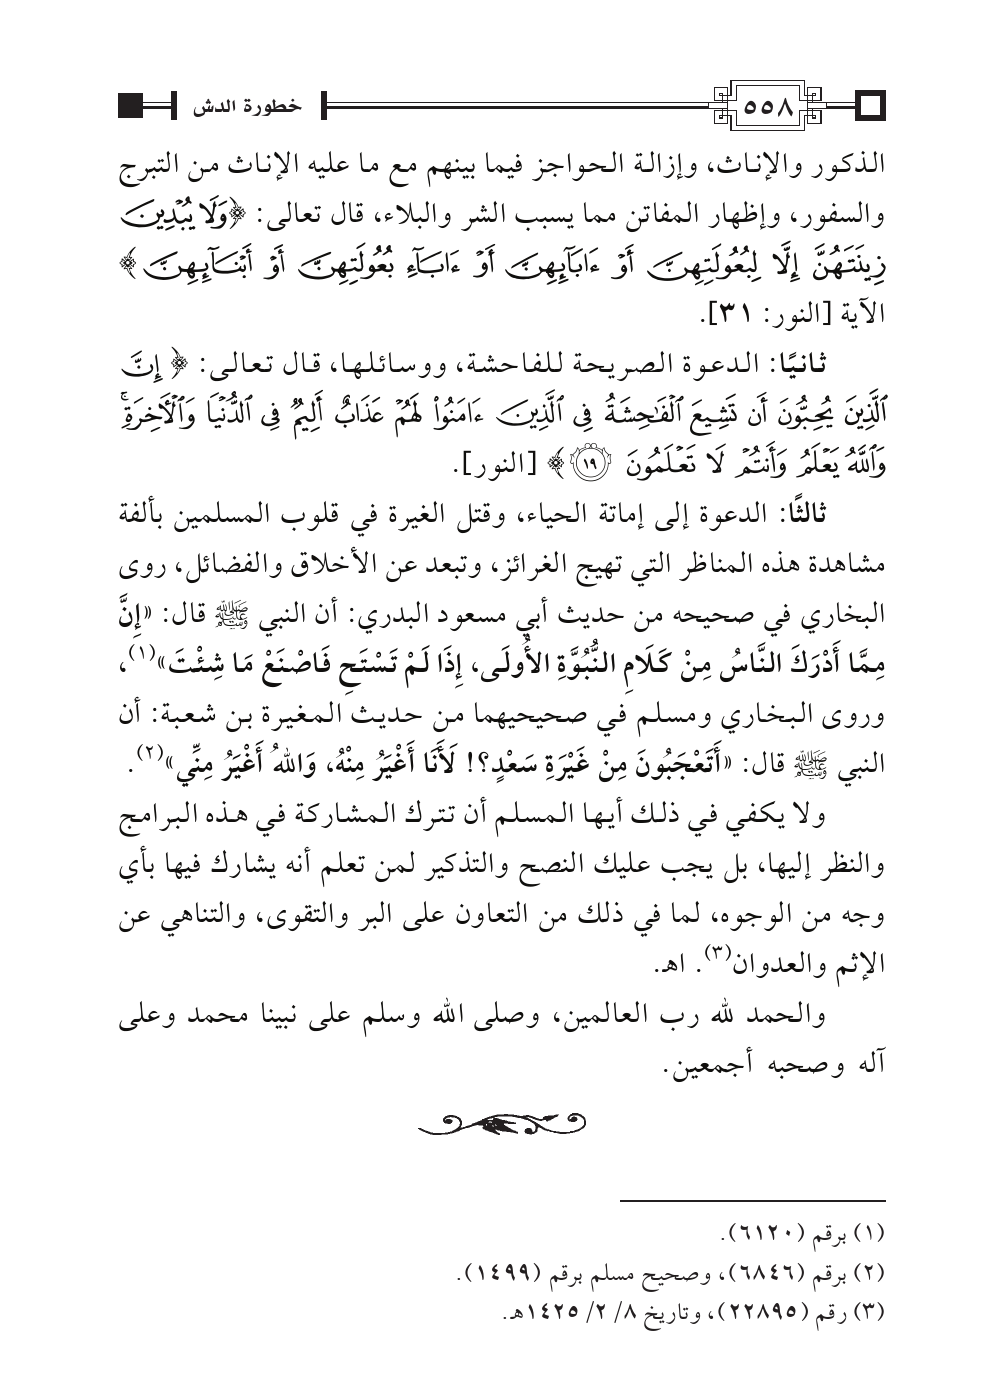 ٥٥٨ خطورة الدش
الذكور والإناث، وإزالة الحواجز فيما بينهم مع ما عليه الإناث من التبرج
والسفور، وإظهار المفاتن مما يسبب الشر والبلاء، قال تعالى: ﴿وَلَا يُبْدِينَ
زِينَتَهُنَّ إِلَّا لِبُعُولَتِهِنَّ أَوْ ءَابَآئِهِنَّ أَوْ ءَابَآءِ بُعُولَتِهِنَّ أَوْ أَبْنَآئِهِنَّ﴾
الآية [النور: ٣١].
ثانيًا: الدعوة الصريحة للفاحشة، ووسائلها، قال تعالى: ﴿إِنَّ
ٱلَّذِينَ يُحِبُّونَ أَن تَشِيعَ ٱلْفَٰحِشَةُ فِى ٱلَّذِينَ ءَامَنُوا۟ لَهُمْ عَذَابٌ أَلِيمٌ فِى ٱلدُّنْيَا وَٱلْـَٔاخِرَةِ ۚ
وَٱللَّهُ يَعْلَمُ وَأَنتُمْ لَا تَعْلَمُونَ ۝١٩﴾ [النور].
ثالثًا: الدعوة إلى إماتة الحياء، وقتل الغيرة في قلوب المسلمين بألفة
مشاهدة هذه المناظر التي تهيج الغرائز، وتبعد عن الأخلاق والفضائل، روى
البخاري في صحيحه من حديث أبي مسعود البدري: أن النبي ﷺ قال: «إِنَّ
مِمَّا أَدْرَكَ النَّاسُ مِنْ كَلَامِ النُّبُوَّةِ الأُولَى، إِذَا لَمْ تَسْتَحِ فَاصْنَعْ مَا شِئْتَ»(١)،
وروى البخاري ومسلم في صحيحيهما من حديث المغيرة بن شعبة: أن
النبي ﷺ قال: «أَتَعْجَبُونَ مِنْ غَيْرَةِ سَعْدٍ؟! لَأَنَا أَغْيَرُ مِنْهُ، وَاللهُ أَغْيَرُ مِنِّي»(٢).
ولا يكفي في ذلك أيها المسلم أن تترك المشاركة في هذه البرامج
والنظر إليها، بل يجب عليك النصح والتذكير لمن تعلم أنه يشارك فيها بأي
وجه من الوجوه، لما في ذلك من التعاون على البر والتقوى، والتناهي عن
الإثم والعدوان(٣). اهـ.
والحمد لله رب العالمين، وصلى الله وسلم على نبينا محمد وعلى
آله وصحبه أجمعين.
(١) برقم (٦١٢٠).
(٢) برقم (٦٨٤٦)، وصحيح مسلم برقم (١٤٩٩).
(٣) رقم (٢٢٨٩٥)، وتاريخ ٨/ ٢/ ١٤٢٥هـ.